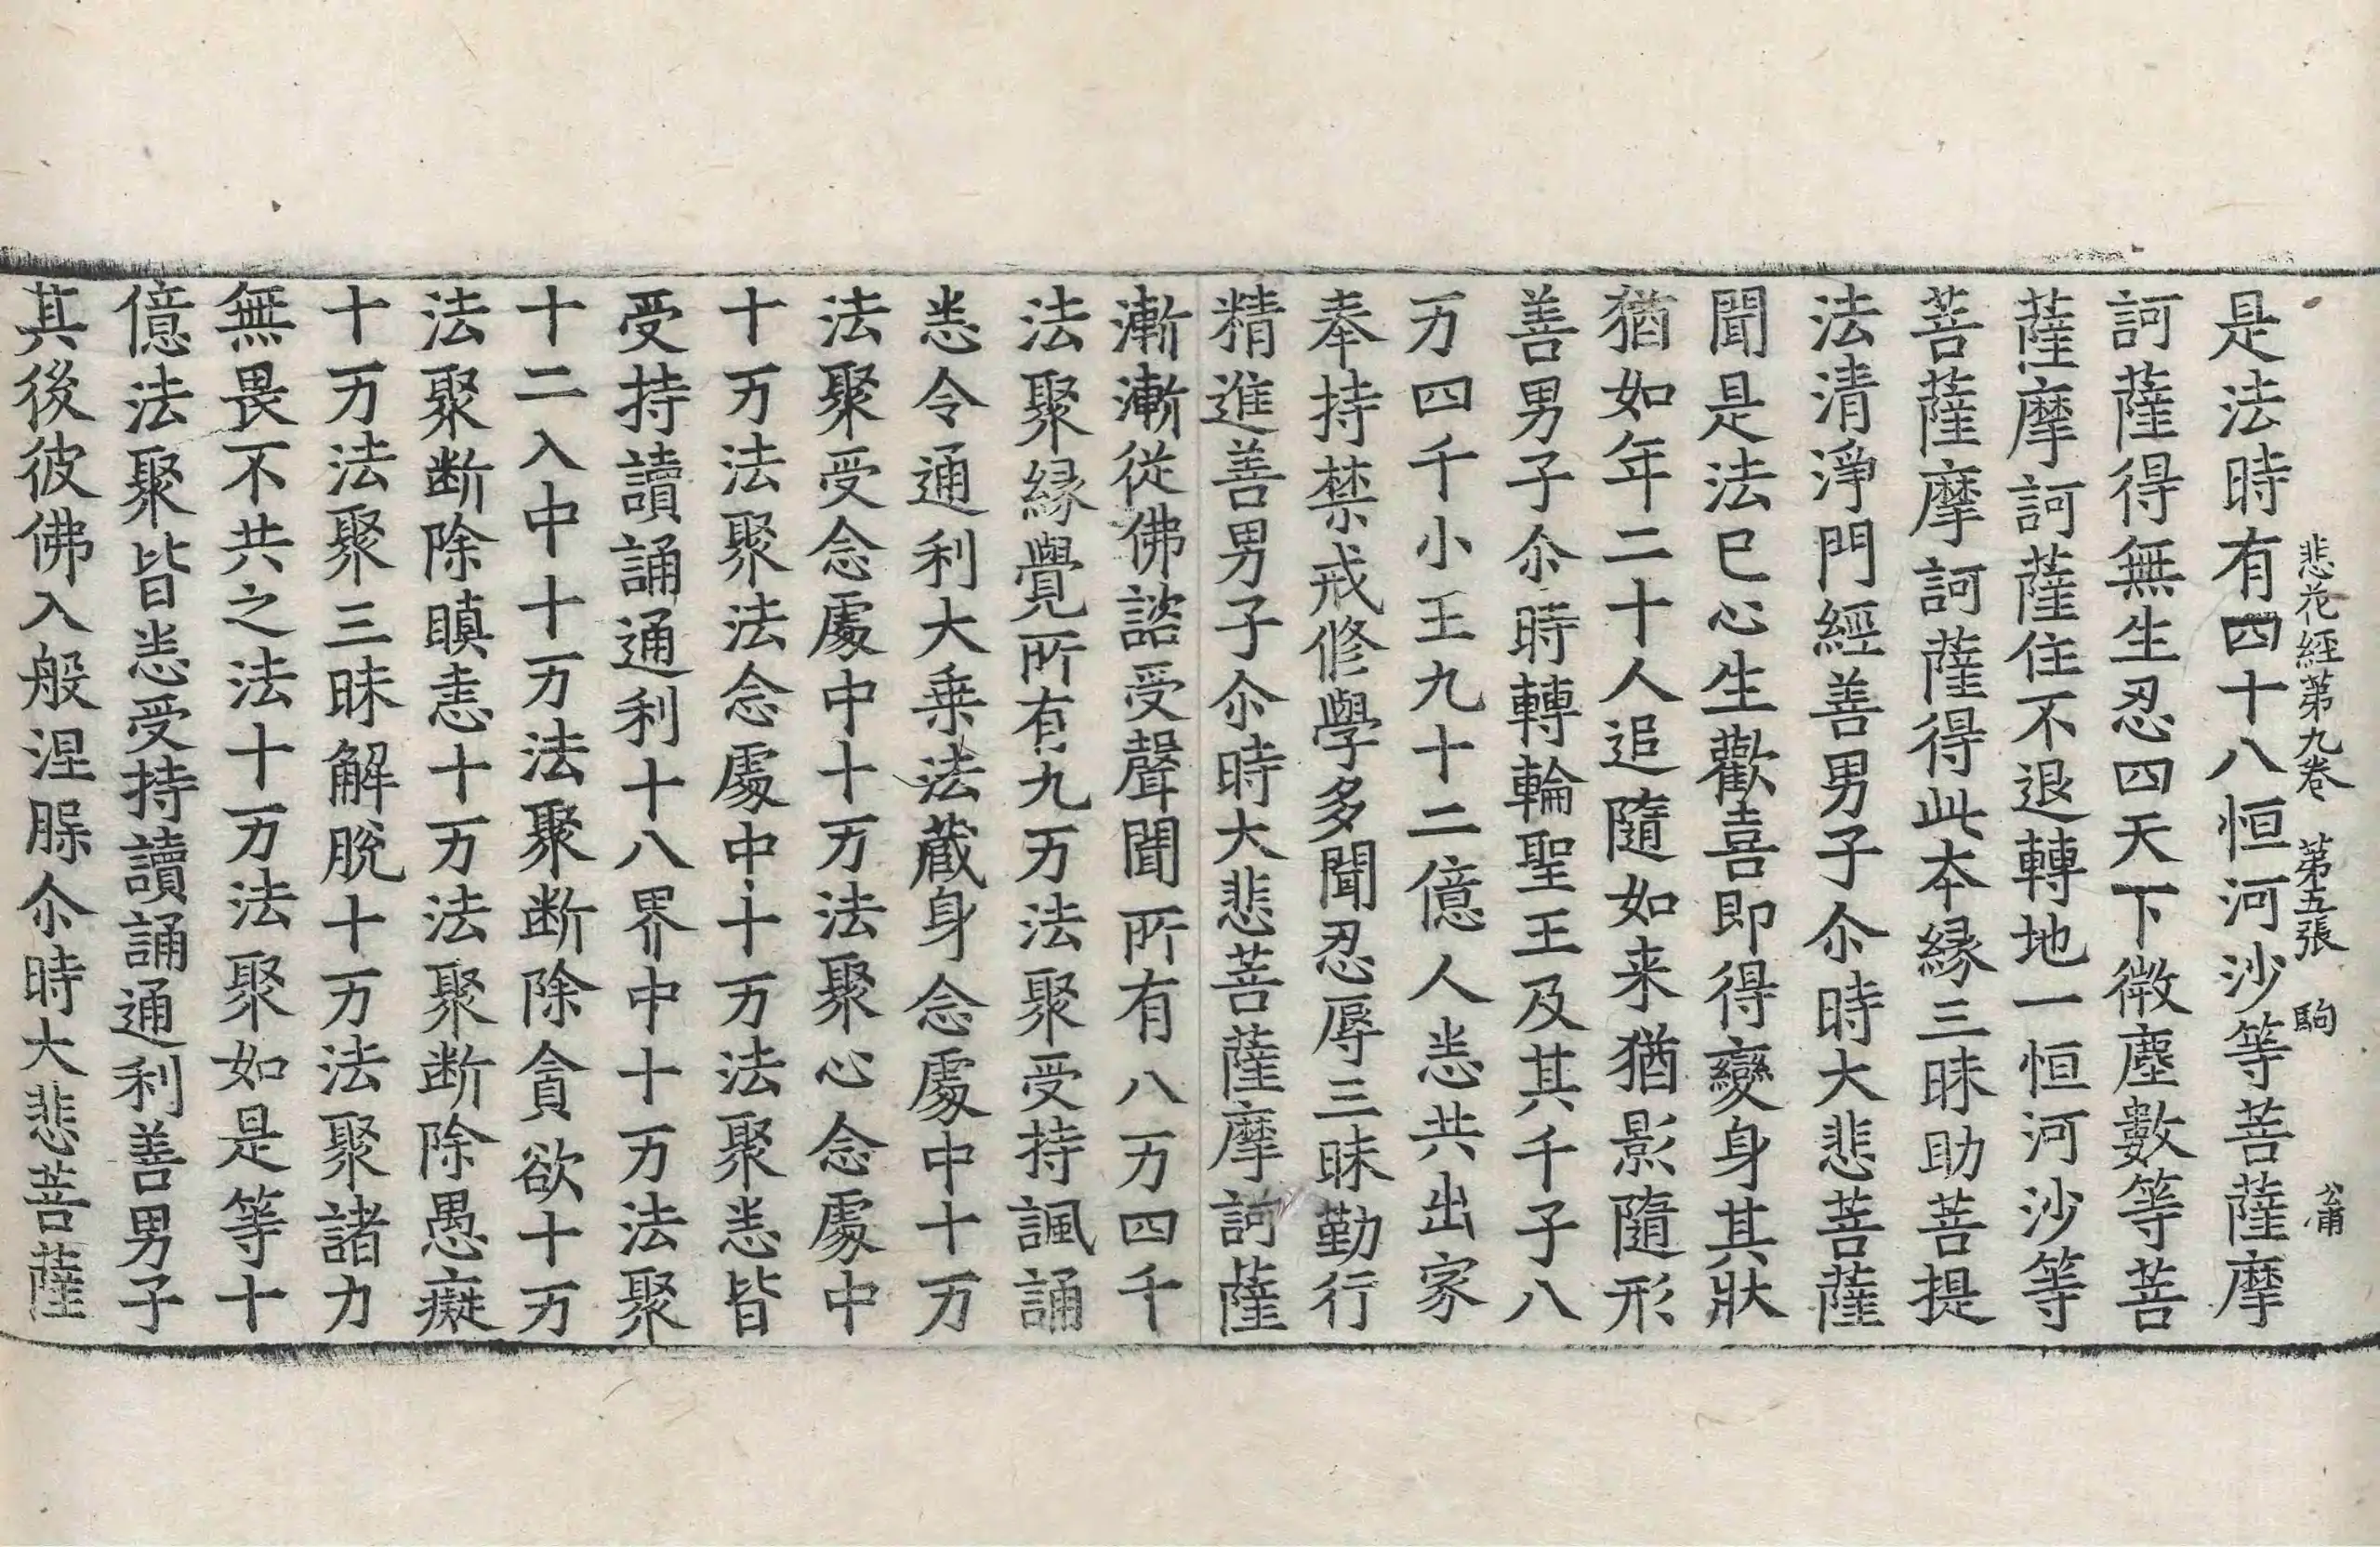 悲花經第九卷　第五張　駒　公甫
是法時有四十八恒河沙等菩薩摩
訶薩得無生忍四天下微塵數等菩
薩摩訶薩住不退轉地一恒河沙等
菩薩摩訶薩得此本縁三昧助菩提
法清淨門經善男子尒時大悲菩薩
聞是法已心生歡喜即得變身其狀
猶如年二十人追隨如来猶影隨形
善男子尒時轉輪聖王及其千子八
万四千小王九十二億人悉共出家
奉持禁戒修學多聞忍辱三昧勤行
精進善男子尒時大悲菩薩摩訶薩
漸漸從佛諮受聲聞所有八万四千
法聚縁覺所有九万法聚受持諷誦
悉令通利大乗法蔵身念處中十万
法聚受念處中十万法聚心念處中
十万法聚法念處中十万法聚悉皆
受持讀誦通利十八界中十万法聚
十二入中十万法聚断除貪欲十万
法聚断除瞋恚十万法聚断除愚癡
十万法聚三昧解脫十万法聚諸力
無畏不共之法十万法聚如是等十
億法聚皆悉受持讀誦通利善男子
其後彼佛入般涅槃尒時大悲菩薩